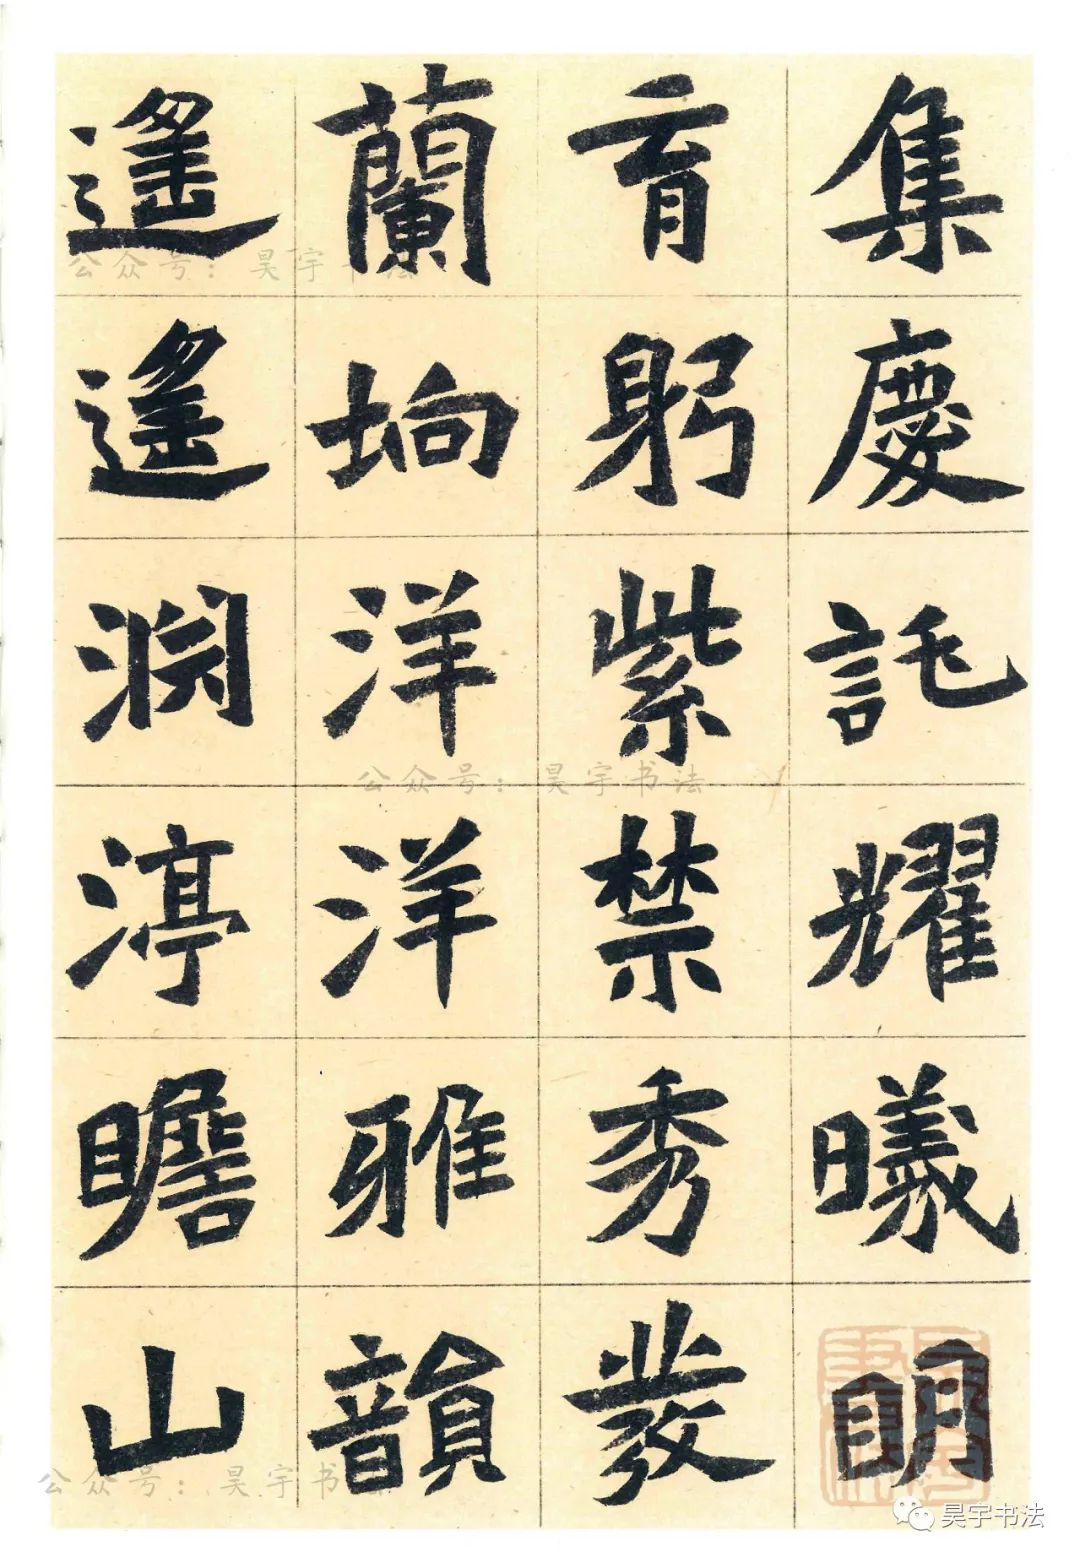 集慶託耀曦朙
育躬紫禁秀發
蘭坰洋洋雅韻
遙遙渊渟瞻山
公众号：昊宇书法
公众号：昊宇书法
公众号：昊宇书
昊宇书法